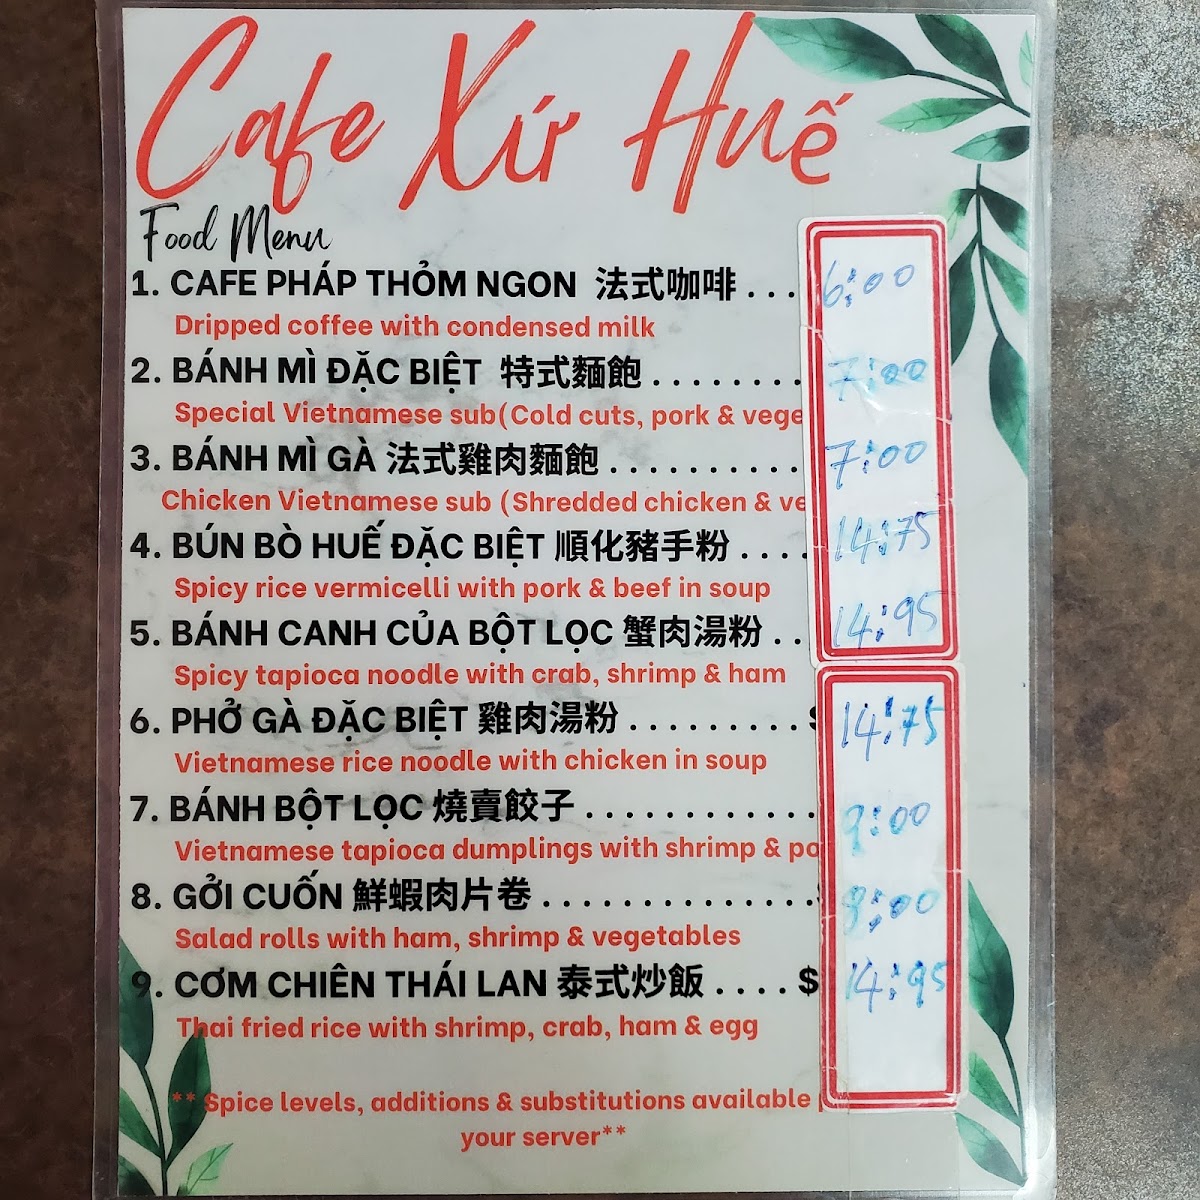 Cafe Xứ Huế
Food Menu
1. CAFE PHÁP THỎM NGON 法式咖啡 . . . . 6:00
Dripped coffee with condensed milk
2. BÁNH MÌ ĐẶC BIỆT 特式麵飽 . . . . . . . . 7:00
Special Vietnamese sub(Cold cuts, pork & vege
3. BÁNH MÌ GÀ 法式雞肉麵飽 . . . . . . . . . . 7:00
Chicken Vietnamese sub (Shredded chicken & ve
4. BÚN BÒ HUẾ ĐẶC BIỆT 順化豬手粉 . . . . 14:75
Spicy rice vermicelli with pork & beef in soup
5. BÁNH CANH CỦA BỘT LỌC 蟹肉湯粉 . . 14:95
Spicy tapioca noodle with crab, shrimp & ham
6. PHỞ GÀ ĐẶC BIỆT 雞肉湯粉 . . . . . . . . . . 14:75
Vietnamese rice noodle with chicken in soup
7. BÁNH BỘT LỌC 燒賣餃子 . . . . . . . . . . . . 9:00
Vietnamese tapioca dumplings with shrimp & po
8. GỞI CUỐN 鮮蝦肉片卷 . . . . . . . . . . . . . . 8:00
Salad rolls with ham, shrimp & vegetables
9. CƠM CHIÊN THÁI LAN 泰式炒飯 . . . . $ 14:95
Thai fried rice with shrimp, crab, ham & egg
** Spice levels, additions & substitutions available
your server**